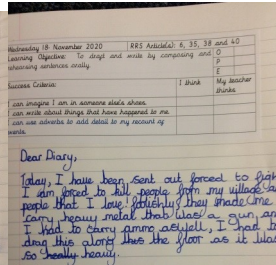 Wednesday 18 November 2020
RRS Article(s): 6, 35, 38 and 40
Learning Objective: To draft and write by composing and rehearsing sentences orally.
O
P
E
Success Criteria:
I think
My teacher thinks
I can imagine I am in someone else's shoes.
I can write about things that have happened to me.
I can use adverbs to add detail to my recount of events.
Dear Diary,
Today, I have been sent out forced to figh
I am forced to kill people from my village a
people that I love! foolishly they made me
carry heavy metal that was a gun, an
I had to carry ammo aswell, I had to
drag this along the floor as it wa
so really heavy.